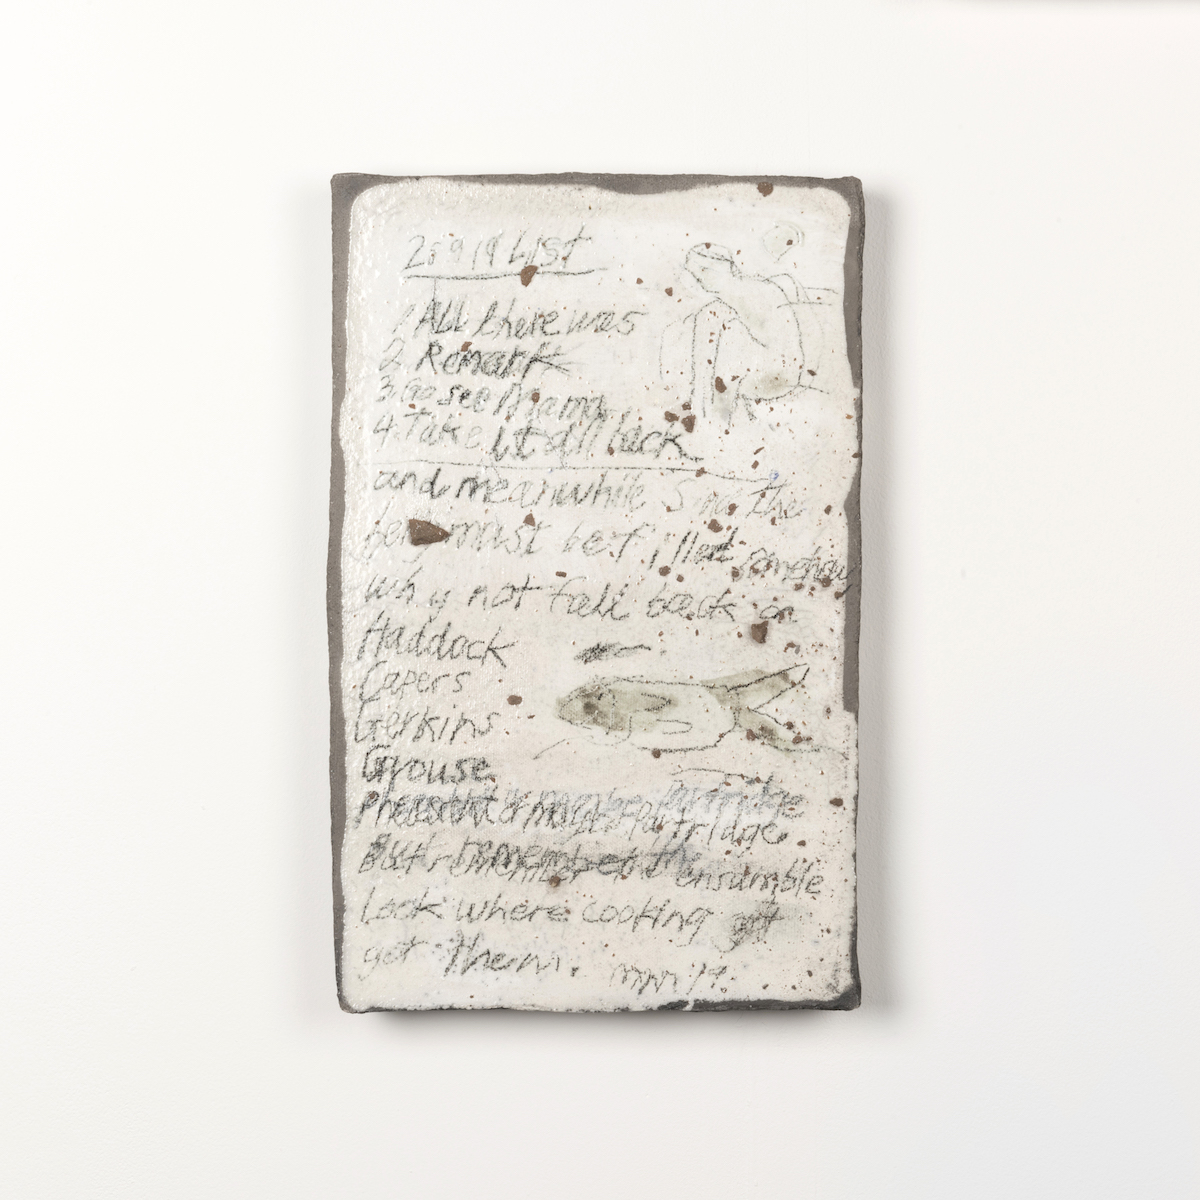 25 9 19 LISt
1 All there was
2. Remark
3. Go see Mama
4. Take it all back
and meanwhile since the
must be filled somehow
why not fall back on
Haddock
Capers
Gerkins
Grouse
Pheasant or maybe Partridge
But remember the ensamble
Look where cooking got
get them. mm '19.